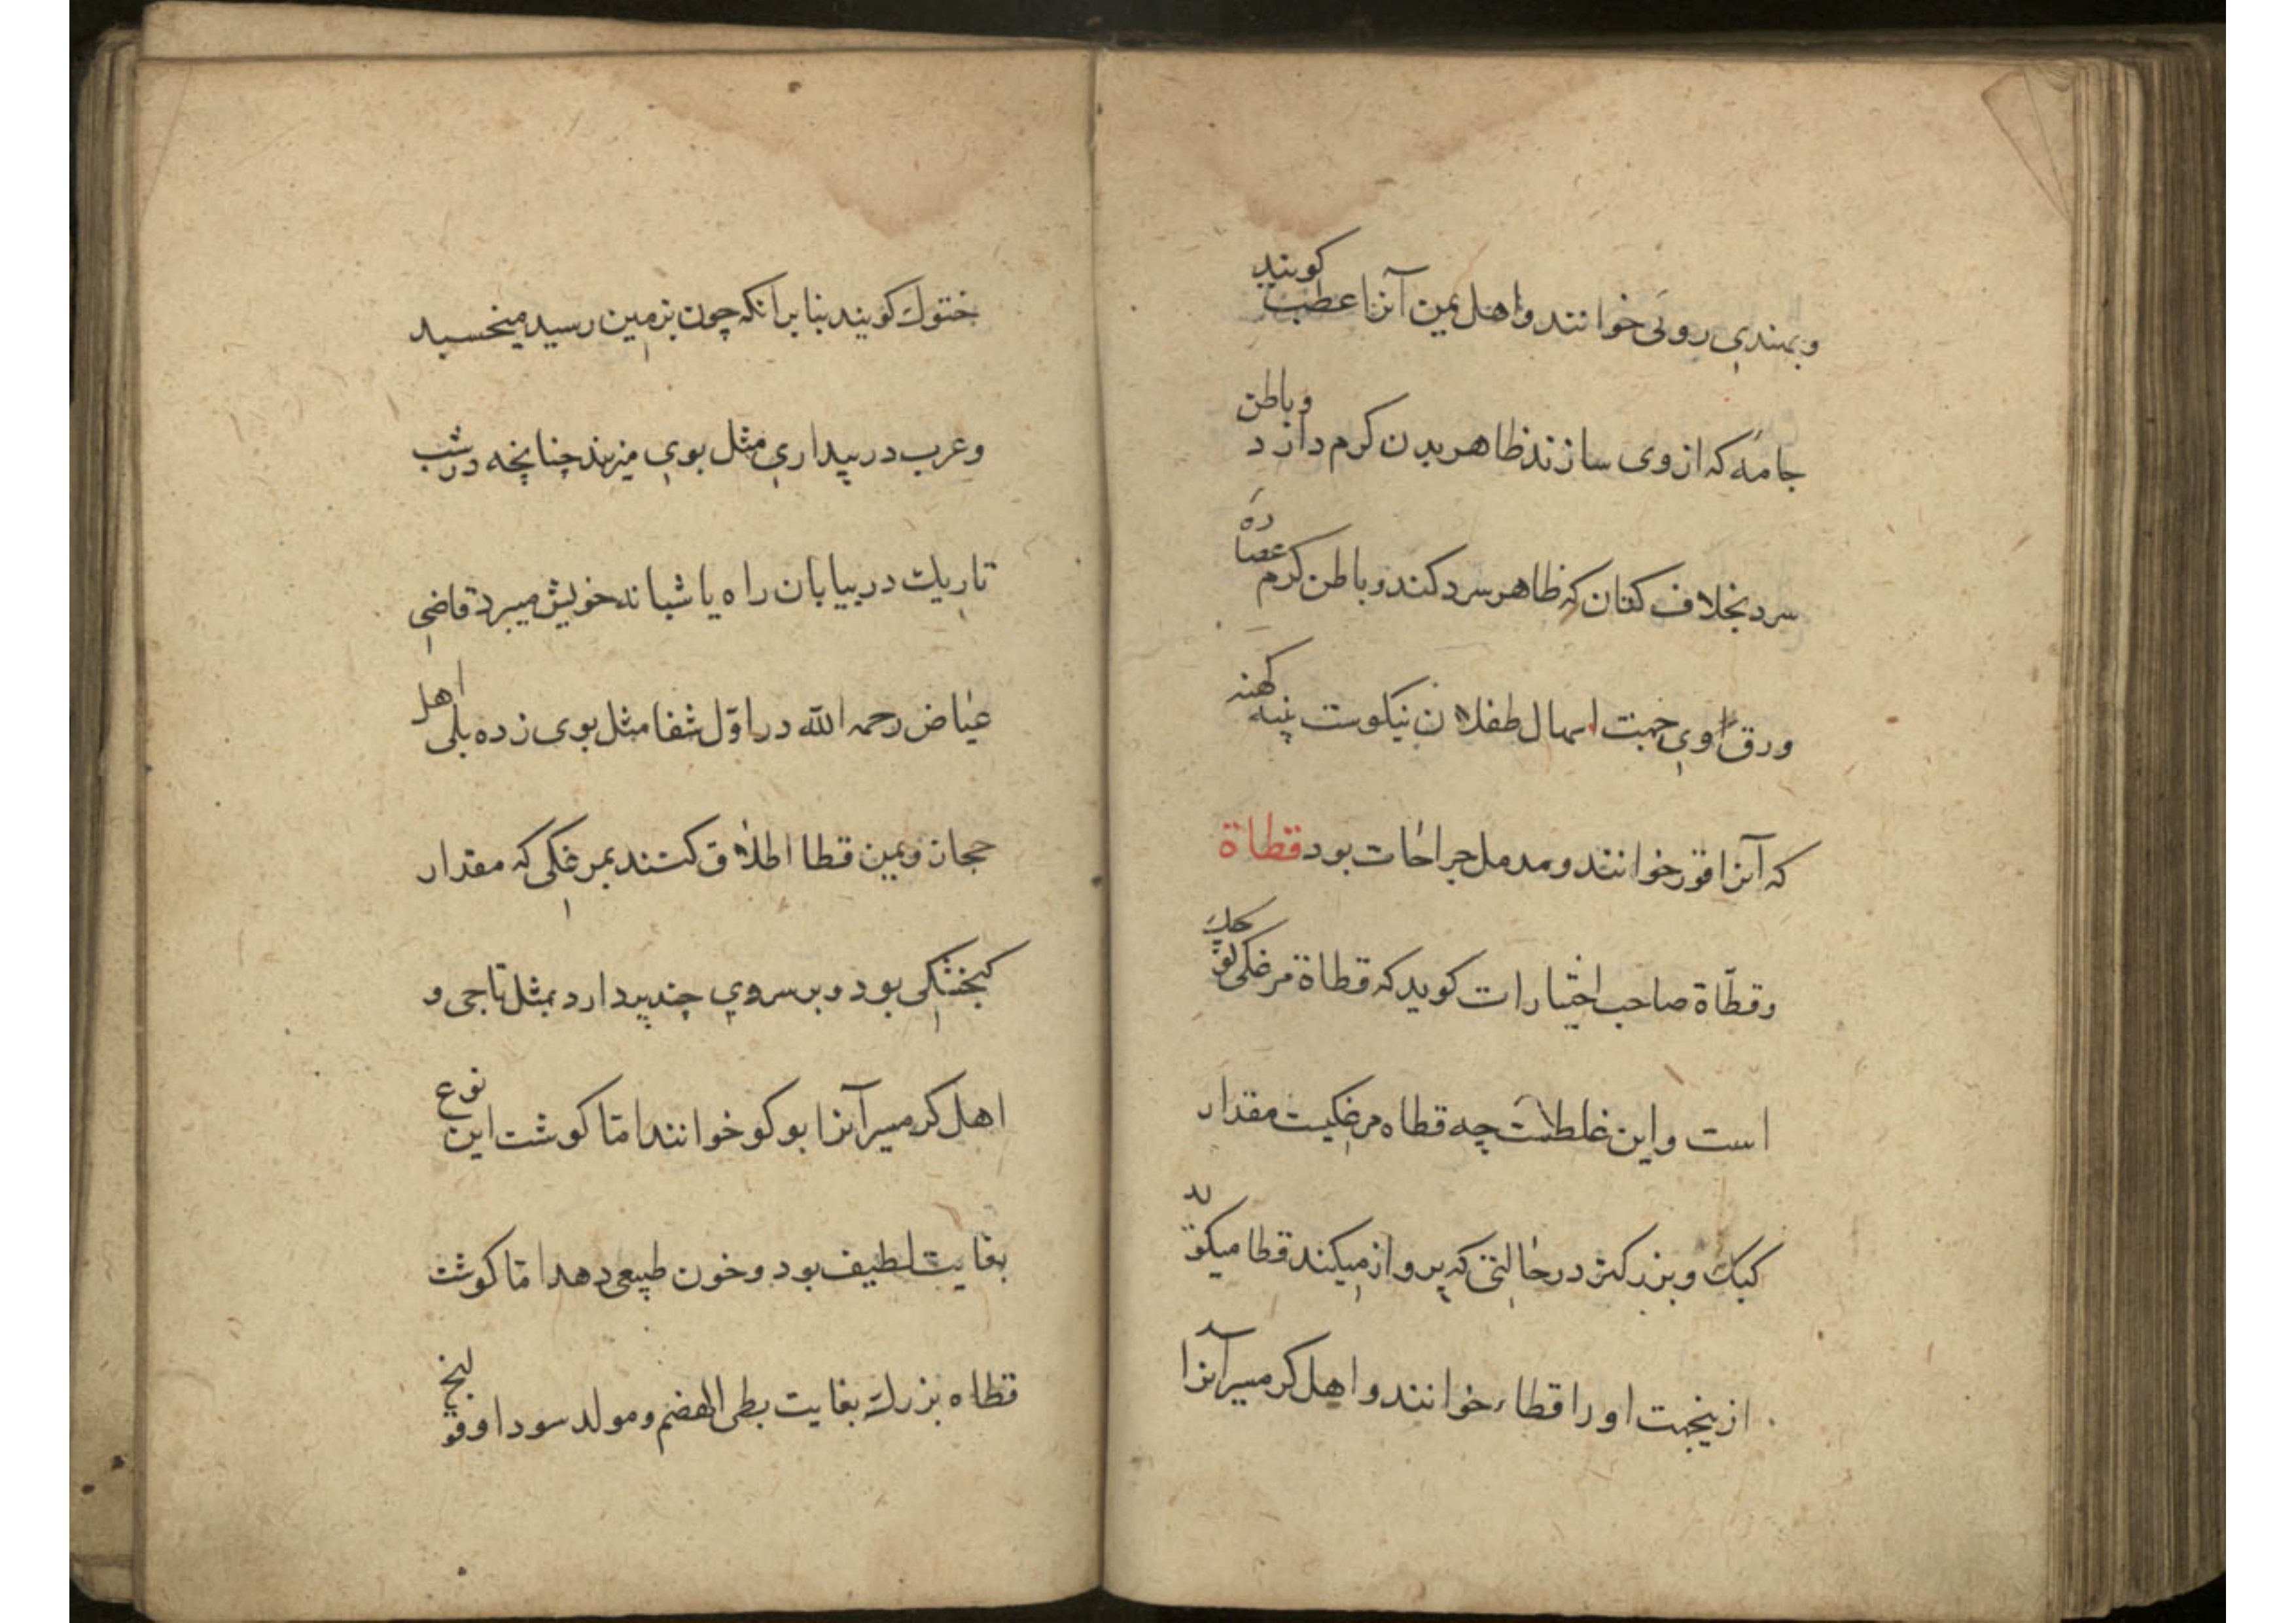 وبهندي روئي خوانند واهل يمن آنرا عطب كويند
جامه كه از وى سازند ظاهر بدن كرم دارد وباطن
سرد بخلاف كتان كه ظاهر سرد كند وباطن كرم عصاره
ورق اوي جهت اسهال طفلان نيكوست پنبه كهنه
كه آنرا قور خوانند ومدمل جراحات بود قطاة
وقطّاة صاحب اختيارات كويد كه قطاة مرغكى كوچك
است واين غلطاست چه قطاه مرغيست مقدار
كبك وبزركتر در حالتى كه پرواز ميكند قطا ميكويد
ازينجهت او را قطاء خوانند واهل كرمسير آنرا
ختوك كويند بنا برانكه چون بزمين رسيد ميخسبد
وعرب در بيداري مثل بوي ميزنند چنانچه در شب
تاريك در بيابان راه باشيانه خويش ميبرد قاضي
عياض رحمه الله در اوّل شفا مثل بوى زده بلى اهل
حجاز ويمن قطا اطلاق كنند بمرغكى كه مقدار
كنجشكى بود وبر سروي چند پر دارد بمثل تاجى و
اهل كرمسير آنرا بوكو خوانند امّا كوشت اين نوع
بغايت لطيف بود وخون طبيعى دهد امّا كوشت
قطاه بزرك بغايت بطى الهضم ومولد سودا وقولنج